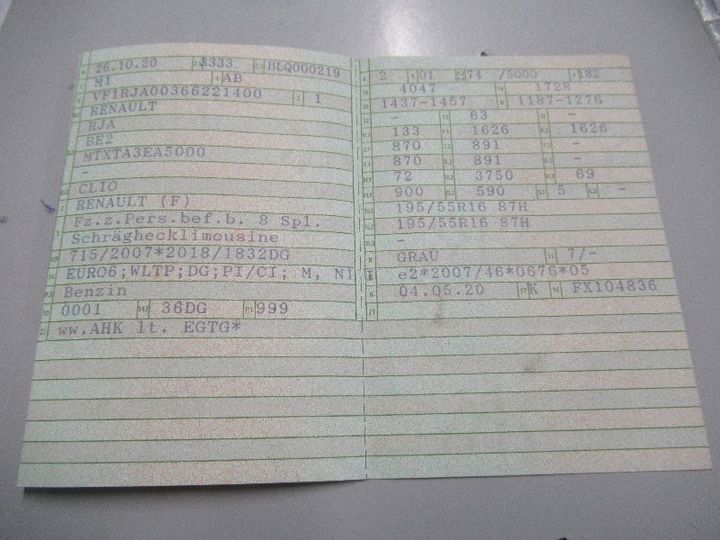 26.10.20 3333 BLQ000219
M1 AB
VF1RJA00366221400 1
RENAULT
RJA
BE2
MTXTA3EA5000
-
CLIO
RENAULT (F)
Fz.z.Pers.bef.b. 8 Spl.
Schräghecklimousine
715/2007*2018/1832DG
EURO6;WLTP;DG;PI/CI; M, N1 I
Benzin
0001 36DG 999
ww.AHK lt. EGTG*
2 01 74 /5000 182
4047 1728
1437-1457 1187-1276
- 63 -
133 1626 1626
870 891 -
870 891 -
72 3750 69
900 590 5 -
195/55R16 87H
195/55R16 87H
-
GRAU 7/-
e2*2007/46*0676*05
04.05.20 K FX104836